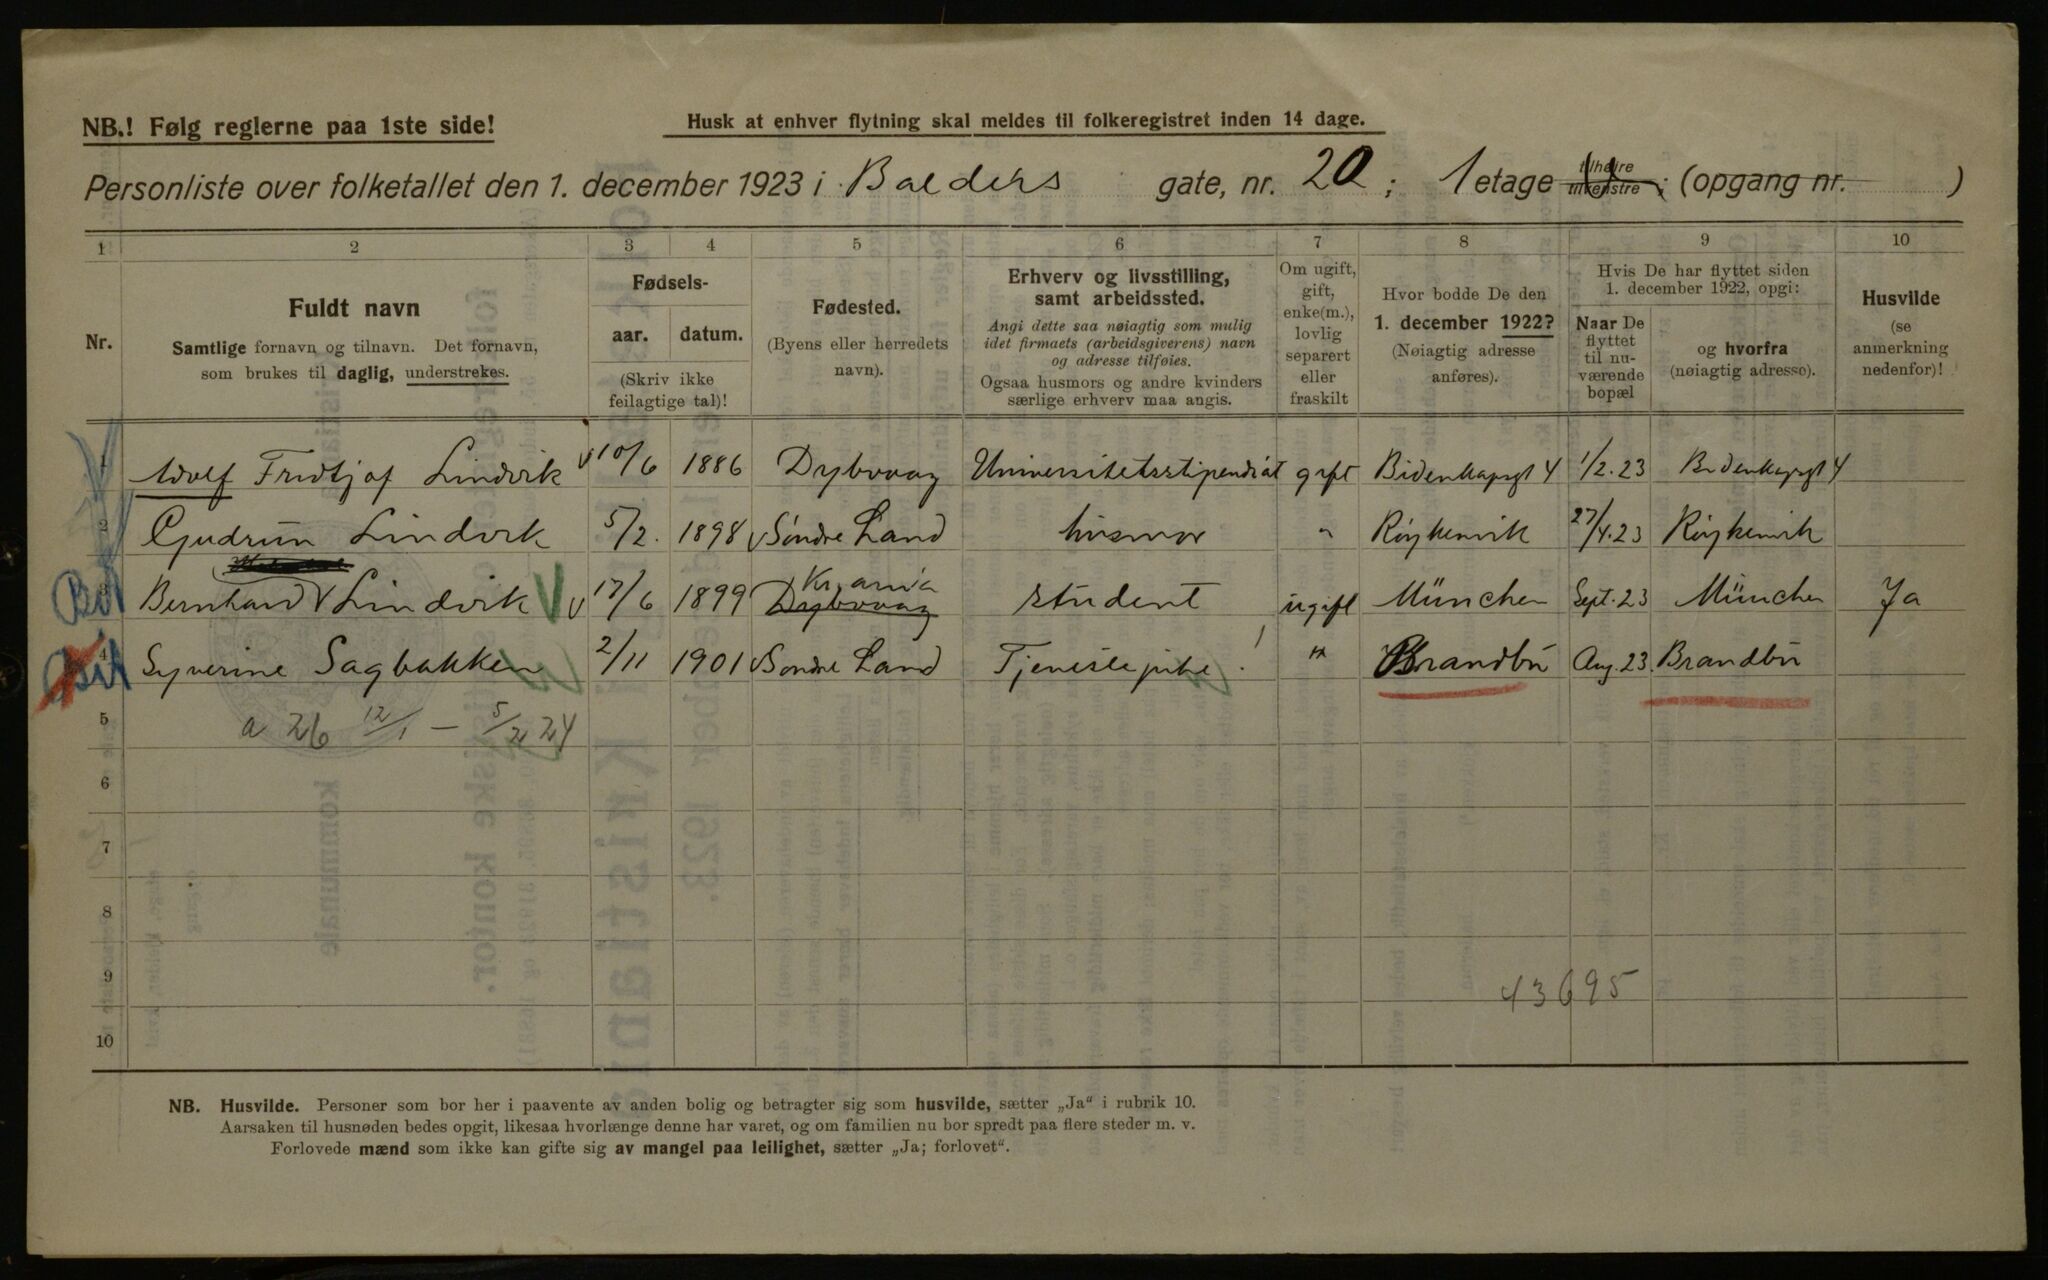 NB.! Følg reglerne paa 1ste side!
Husk at enhver flytning skal meldes til folkeregistret inden 14 dage.
Personliste over folketallet den 1. december 1923 i Balders gate, nr. 20; 1 etage tilhøire tilvenstre; (opgang nr. )
1 2 3 4 5 6 7 8 9 10
Nr.
Fuldt navn
Samtlige fornavn og tilnavn. Det fornavn,
som brukes til daglig, understrekes.
Fødsels-
aar. datum.
(Skriv ikke
feilagtige tal)!
Fødested.
(Byens eller herredets
navn).
Erhverv og livsstilling,
samt arbeidssted.
Angi dette saa nøiagtig som mulig
idet firmaets (arbeidsgiverens) navn
og adresse tilføies.
Ogsaa husmors og andre kvinders
særlige erhverv maa angis.
Om ugift,
gift,
enke(m.),
lovlig
separert
eller
fraskilt
Hvor bodde De den
1. december 1922?
(Nøiagtig adresse
anføres).
Hvis De har flyttet siden
1. december 1922, opgi:
Naar De
flyttet
til nu-
værende
bopæl
og hvorfra
(nøiagtig adresse).
Husvilde
(se
anmerkning
nedenfor)!
1 Adolf Fridtjof Lindvik 10/6 1886 Dybvaag Universitetsstipendiat gift Bidenkapsgt 4 1/2.23 Bidenkapsgt 4
2 Gudrun Lindvik 5/2. 1898 Søndre Land husmor " Røykenvik 27/4.23 Røykenvik
3 Bernhard Lindvik 17/6 1899 Dybvaag Kr.ania student ugift München Sept. 23 München Ja
4 Syverine Sagbakken 2/11 1901 Søndre Land Tjenestepike " Brandbu Aug. 23 Brandbu
5 a 26 12/1 – 5/2 24
6
7
8
9 43695
10
NB. Husvilde. Personer som bor her i paavente av anden bolig og betragter sig som husvilde, sætter „Ja“ i rubrik 10.
Aarsaken til husnøden bedes opgit, likesaa hvorlænge denne har varet, og om familien nu bor spredt paa flere steder m. v.
Forlovede mænd som ikke kan gifte sig av mangel paa leilighet, sætter „Ja; forlovet“.